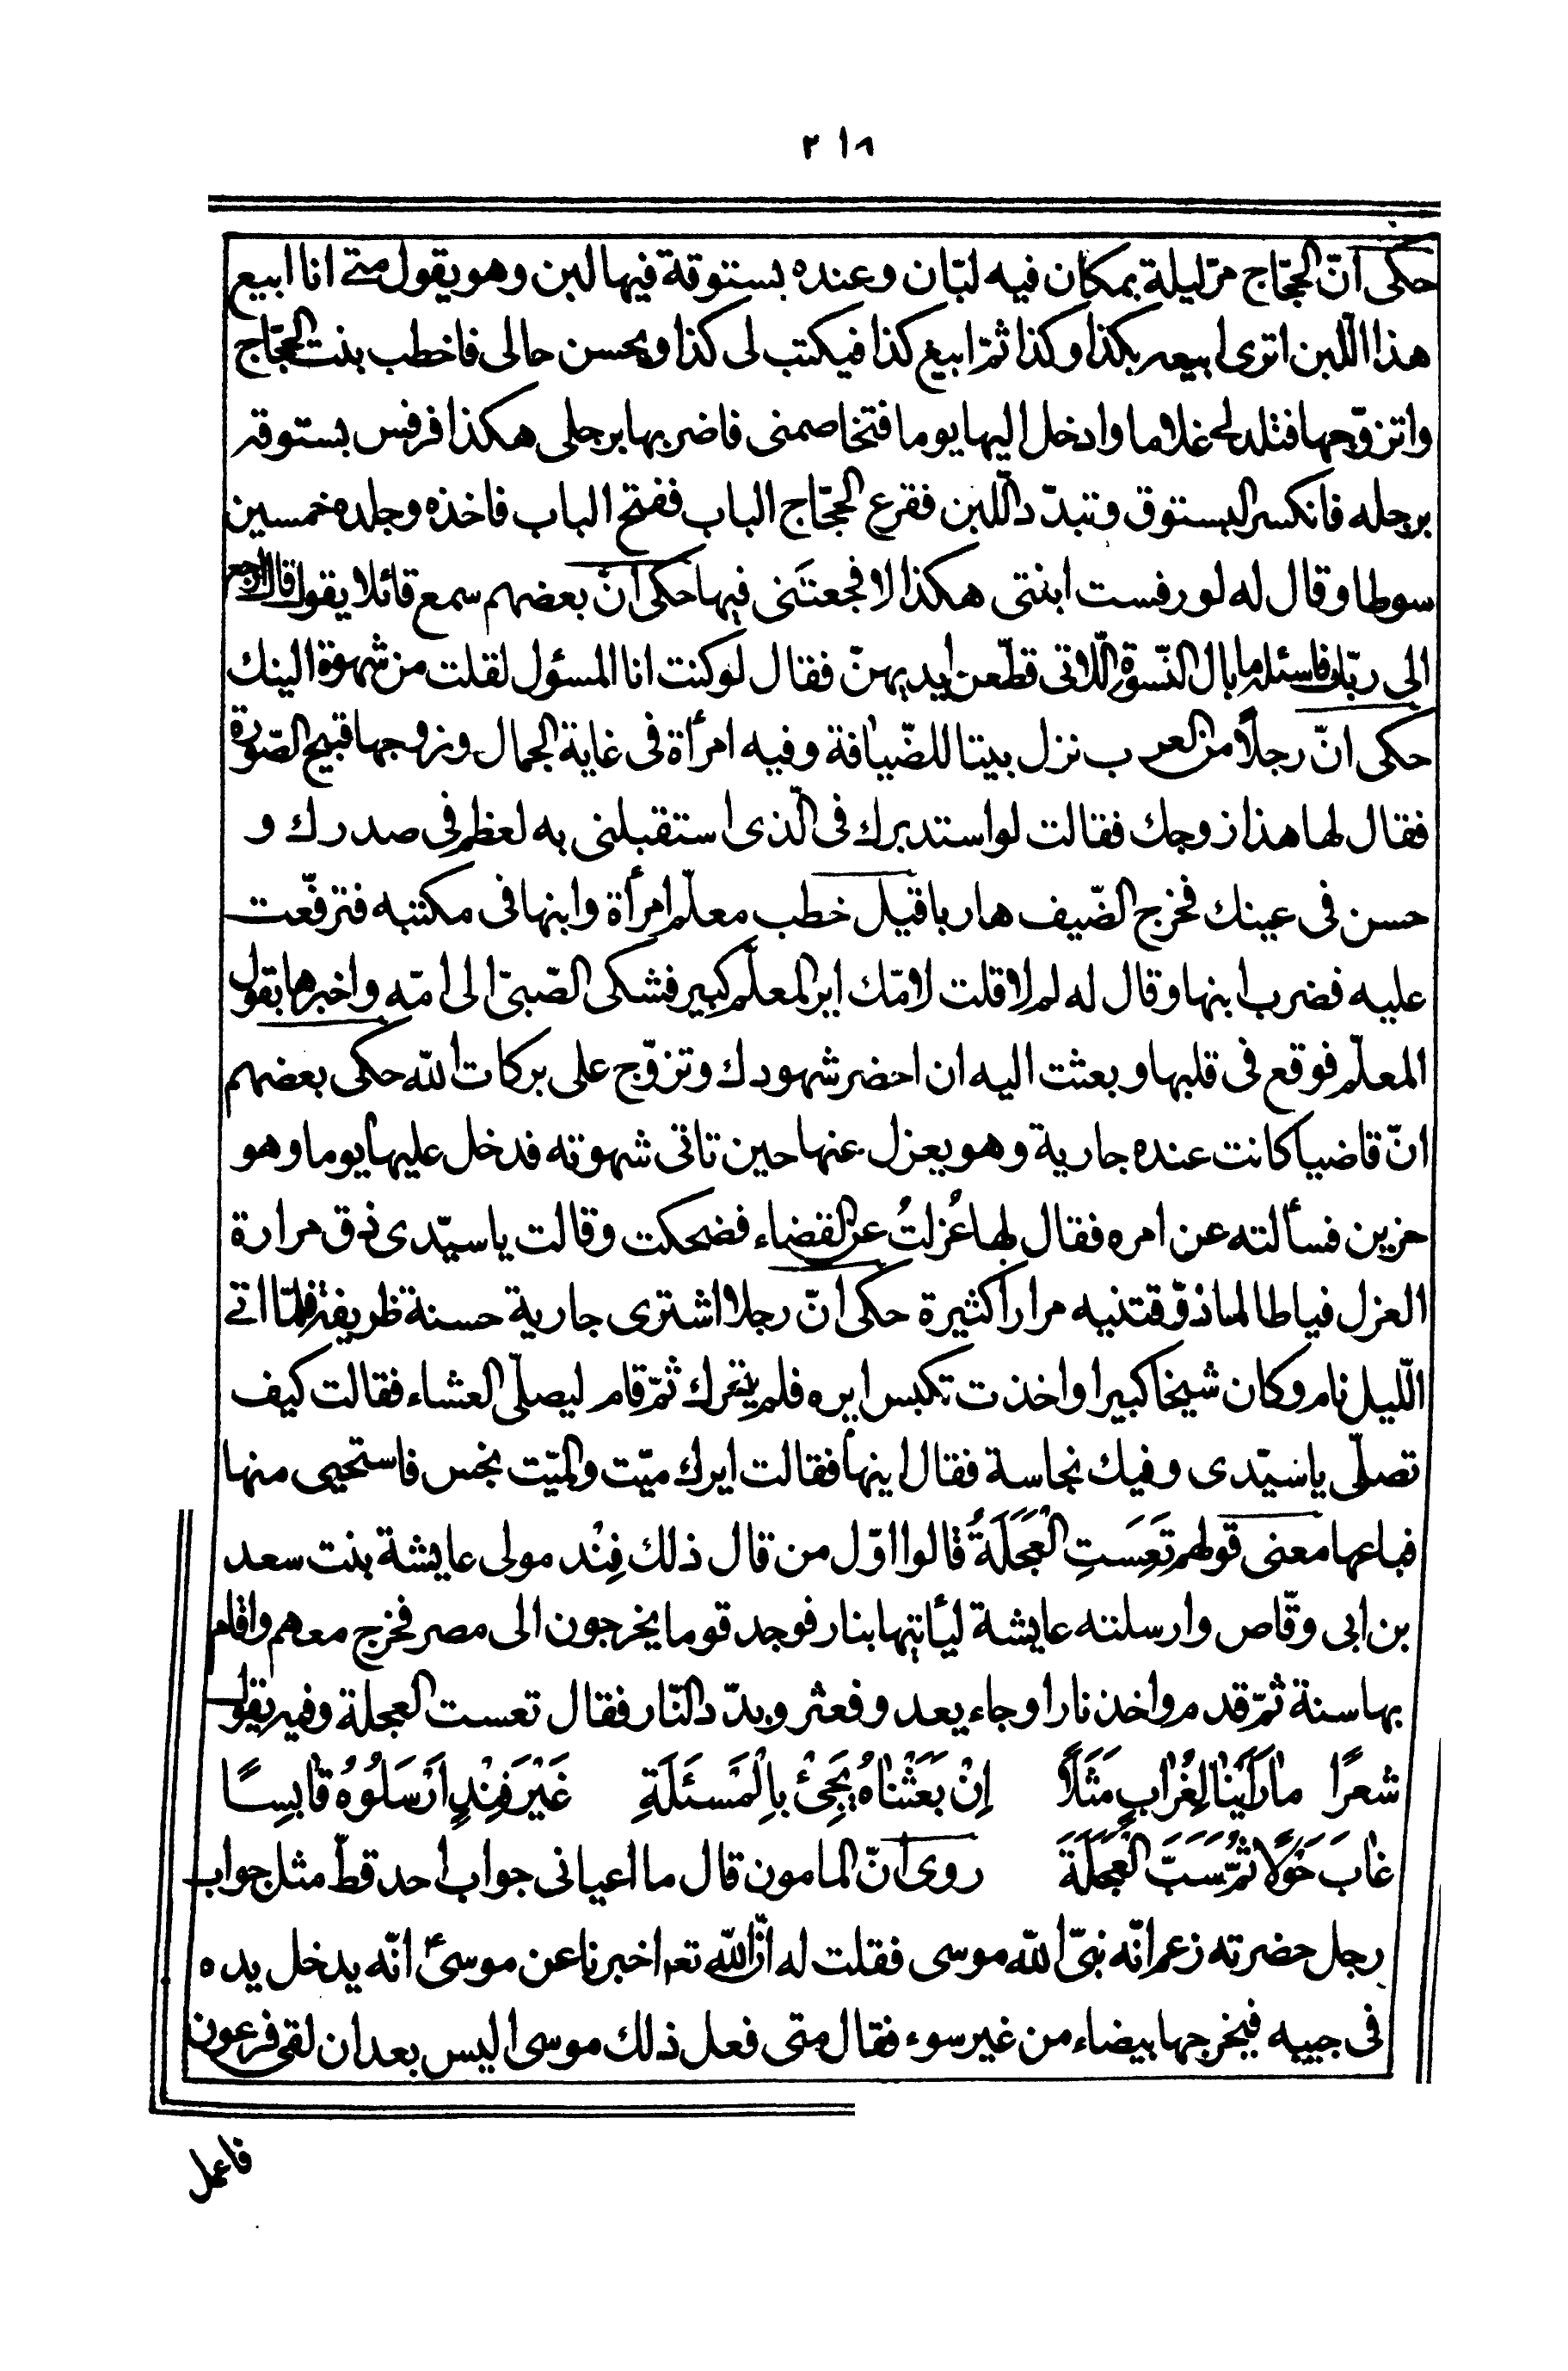 ٢١٨
حكى انّ الحجّاج مرّ ليلة بمكان فيه لبّان وعنده بستوقة فيها لبن وهو يقول متى انا ابيع
هذا اللّبن اترى ابيعه بكذا وكذا ثمّ ابيع كذا فيكتب لى كذا ويحسن حالى فاخطب بنت الحجّاج
واتزوّجها فتلد لى غلاما وادخل اليها يوما فتخاصمنى فاضربها برجلى هكذا فرفس بستوقه
برجله فانكسر البستوق وتبدّد اللّبن فقرع الحجّاج الباب ففتح الباب فاخذه وجلده خمسين
سوطا وقال له لو رفست ابنتى هكذا لا فجعتنى فيها حكى انّ بعضهم سمع قائلا يقول قال ارجع
الى ربّك فاسئله ما بال النّسوة اللّاتى قطّعن ايديهنّ فقال لو كنت انا المسئول لقلت من شهوة النيك
حكى انّ رجلاً من العرب نزل بيتا للضّيافة وفيه امرأة فى غاية الجمال وزوجها قبيح الصّورة
فقال لها هذا زوجك فقالت لو استدبرك فى الّذى استقبلنى به لعظم فى صدرك و
حسن فى عينك فخرج الضّيف هاربا قيل خطب معلّم امرأة وابنها فى مكتبه فترفّعت
عليه فضرب ابنها وقال له لم لا قلت لامّك اير المعلّم كبير فشكى الصّبىّ الى امّه واخبرها بقول
المعلّم فوقع فى قلبها وبعثت اليه ان احضر شهودك وتزوّج على بركات الله حكى بعضهم
انّ قاضيا كانت عنده جارية وهو يعزل عنها حين تاتى شهوته فدخل عليها يوما وهو
حزين فسألته عن امره فقال لها عُزلتُ عن القضاء فضحكت وقالت يا سيّدى ذق مرارة
العزل فيا طالما ذوّقتنيه مرارا كثيرة حكى انّ رجلا اشترى جارية حسنة ظريفة فلمّا اتى
اللّيل نام وكان شيخا كبيرا واخذت تكبس ايره فلم يتحرك ثمّ قام ليصلّى العشاء فقالت كيف
تصلّى يا سيّدى وفيك نجاسة فقال اينها فقالت ايرك ميّت والميّت نجس فاستحيى منها
فباعها معنى قولهم تَعِسَتِ الْعَجَلَةُ قالوا اوّل من قال ذلك فِنْد مولى عايشة بنت سعد
بن ابى وقّاص وارسلته عايشة ليأتيها بنار فوجد قوما يخرجون الى مصر فخرج معهم واقام
بها سنة ثمّ قدم واخذ نارا وجاء يعدو فعثر وبدّد النّار فقال تعست العجلة وفيه يقول
شعرًا ما رَاَيْنا لِغُرابٍ مَثَلًا اِنْ بَعَثْناهُ يَجِئْ بِالْمَسئَلَةِ غَيْرَ فِنْدٍ اَرْسَلُوهُ قابِسًا
غابَ حَوْلًا ثُمَّ سَبَّ الْعَجَلَةَ روى انّ المامون قال ما اعيانى جواب احد قطّ مثل جواب
رجل حضرته زعم انّه نبىّ الله موسى فقلت له انّ الله تعه اخبرنا عن موسىٰ انّه يدخل يده
فى جيبه فيخرجها بيضاء من غير سوء فقال متى فعل ذلك موسى اليس بعد ان لقى فرعون
فاعمل